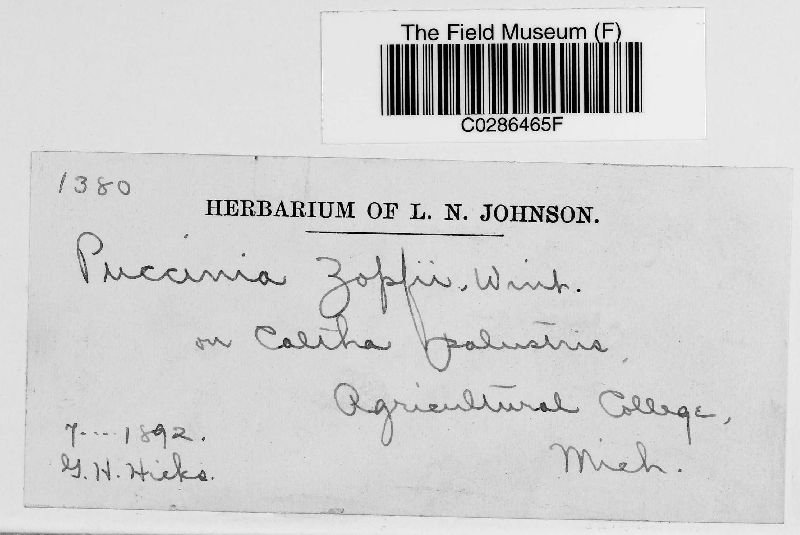 The Field Museum (F)
C0286465F
1380
HERBARIUM OF L. N. JOHNSON.
Puccinia Zopfii, Wint.
on Caltha palustris,
Agricultural College,
Mich.
7----1892.
G. H. Hicks.